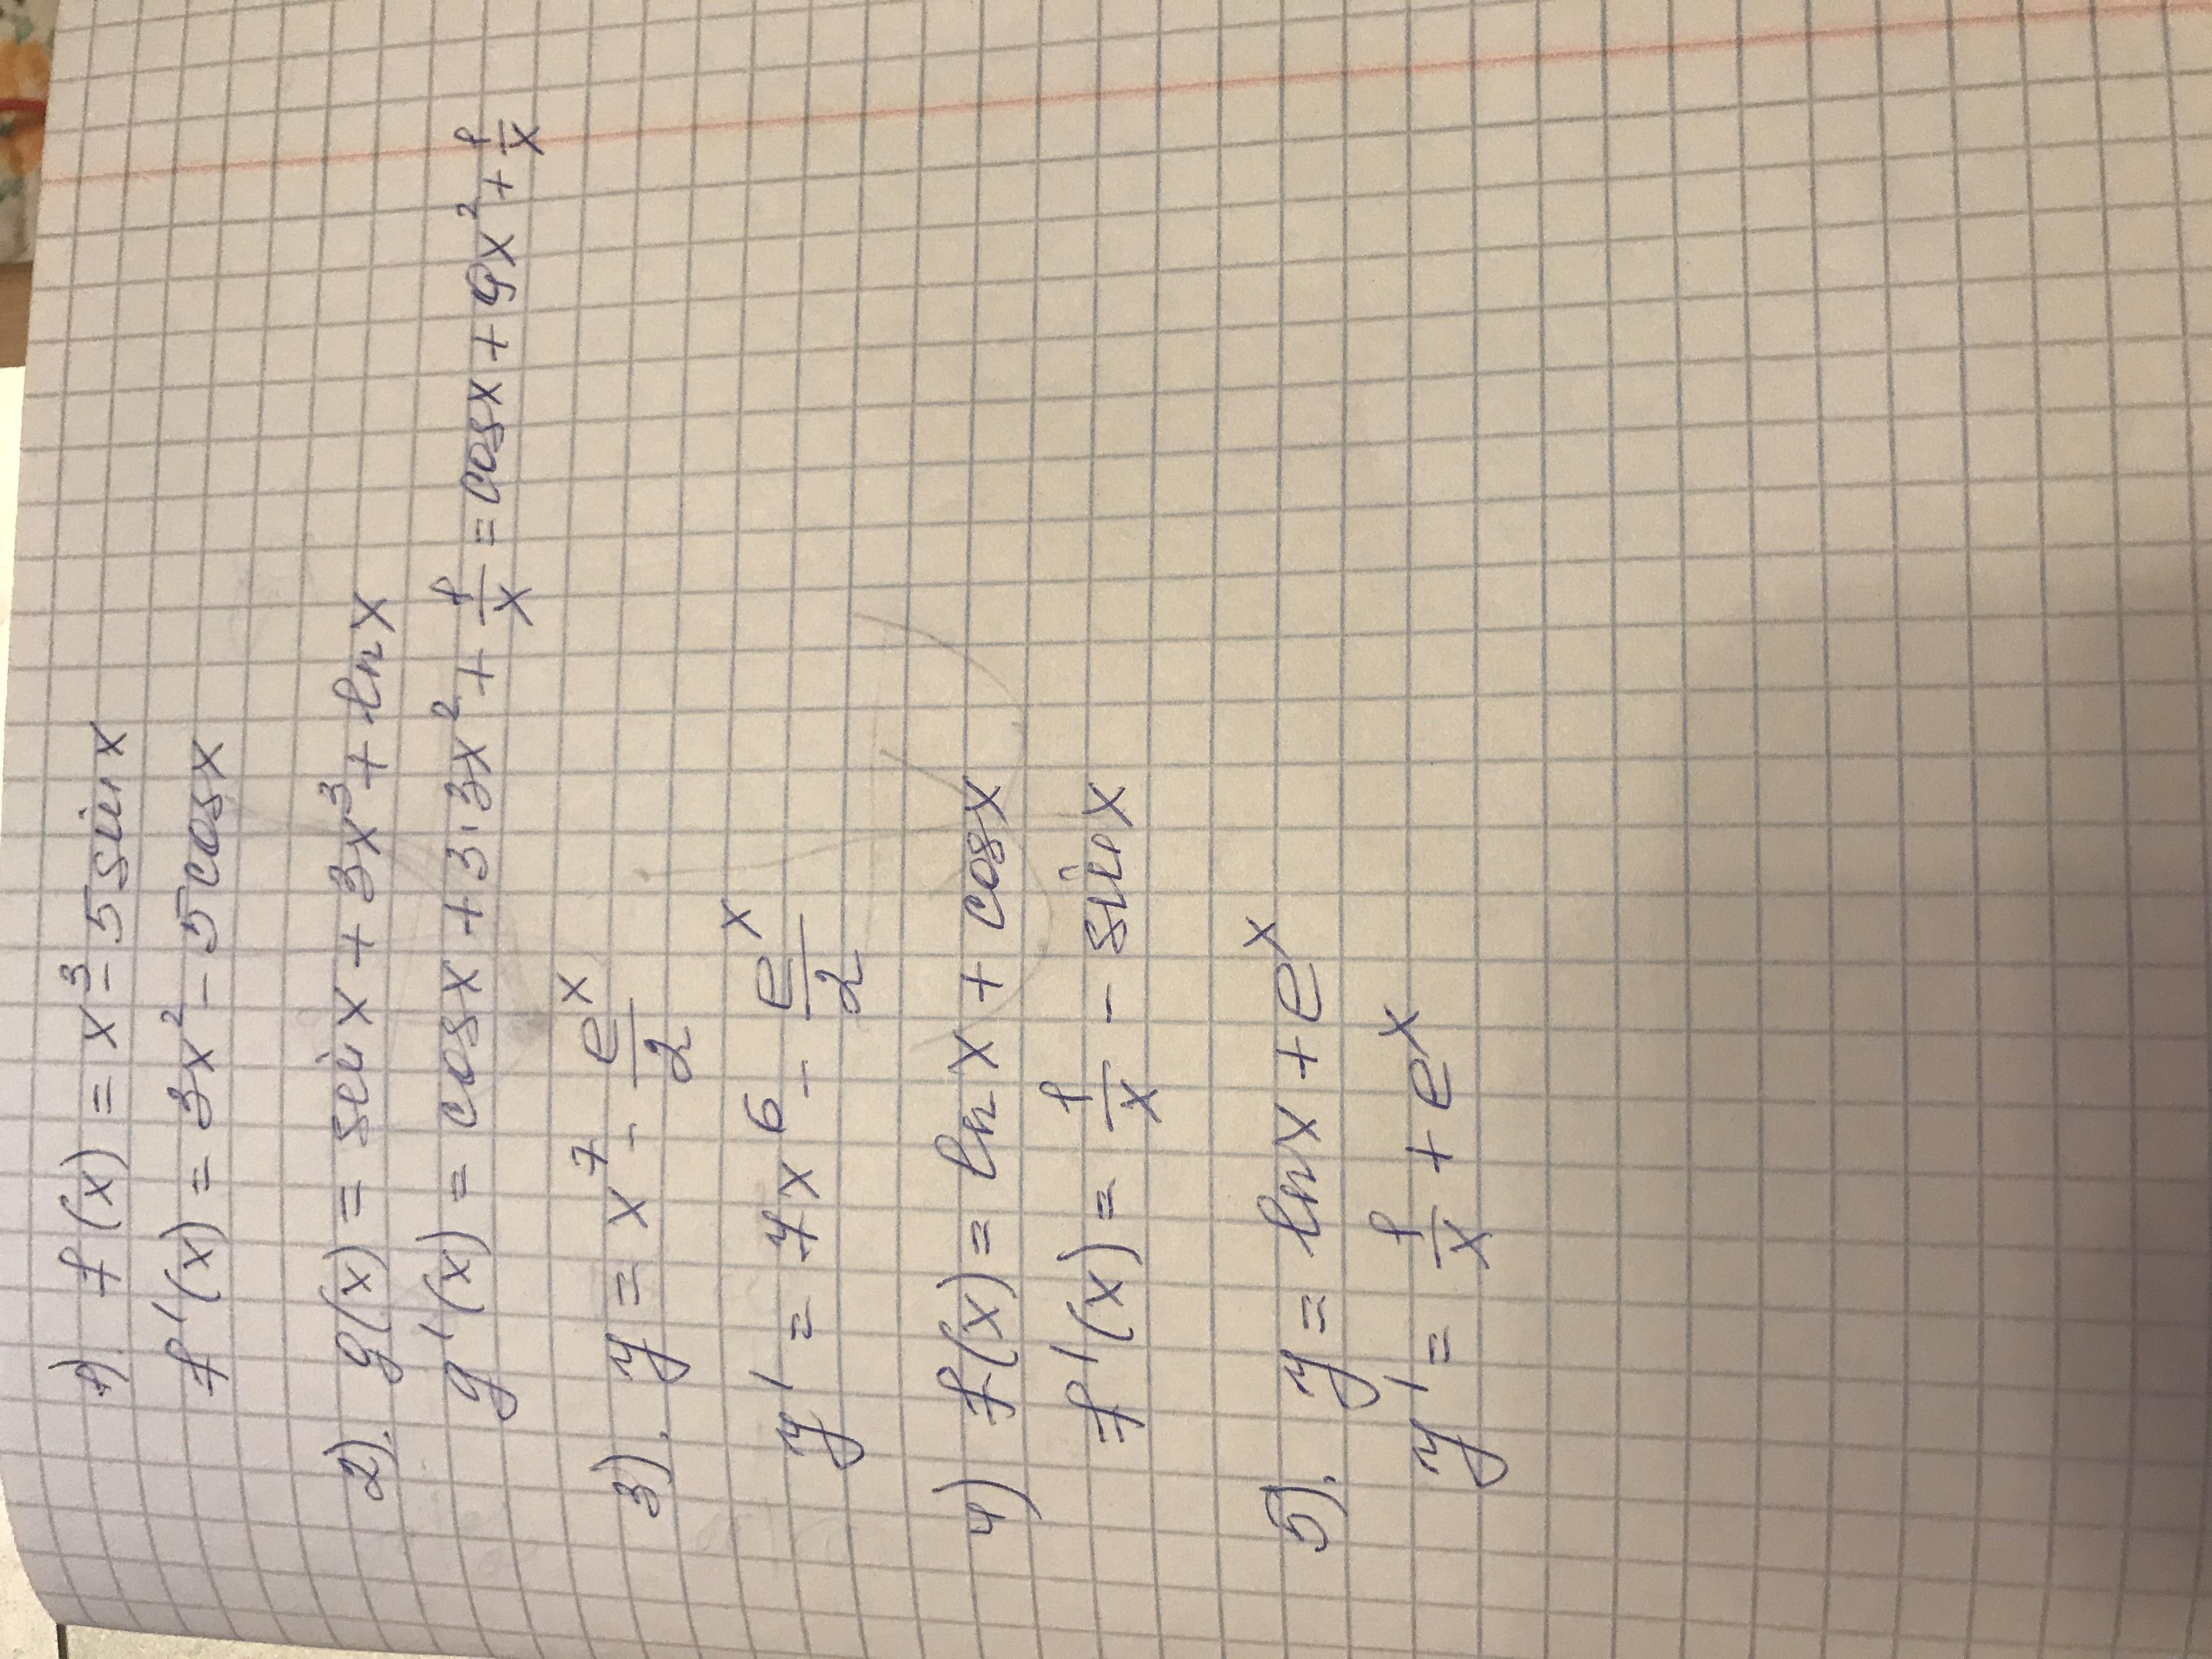 1). f(x) = x³ - 5 sin x
f'(x) = 3x² - 5 cos x
2). g(x) = sin x + 3x³ + ln x
g'(x) = cos x + 3·3x² + 1/x = cos x + 9x² + 1/x
3). y = x⁷ - eˣ/2
y' = 7x⁶ - eˣ/2
4) f(x) = ln x + cos x
f'(x) = 1/x - sin x
5). y = ln x + eˣ
y' = 1/x + eˣ